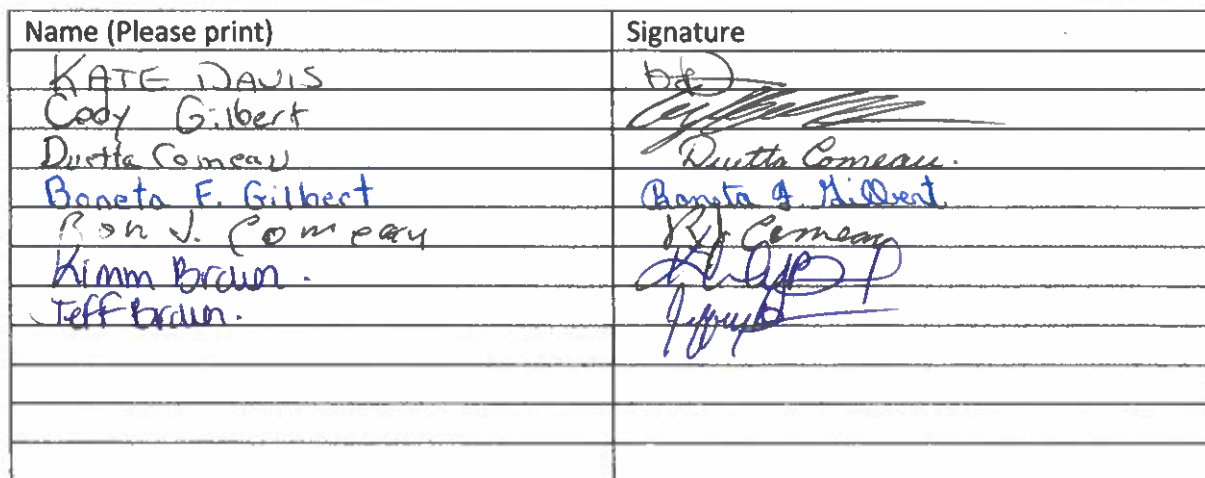 Name (Please print) Signature
KATE DAVIS
Cody Gilbert
Duetta Comeau Duetta Comeau.
Boneta F. Gilbert Boneta F. Gilbert
Ron J. Comeau RJ Comeau
Kimm Braun.
Jeff Braun.